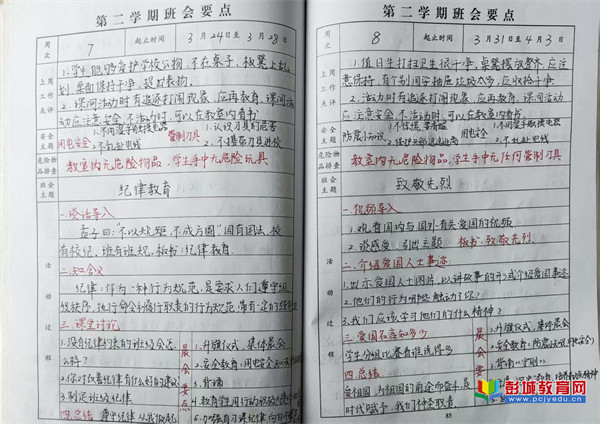 第二学期班会要点
周次
7
起止时间
3月24日至3月28日
上周工作点评
1.学生能够爱护学校公物,不在桌子、板凳上乱
划,桌面保持干净,提出表扬。
2.课间活动时有追逐打闹现象,应再教育,课间活
动应注意安全,不活动时,可以在教室内看书
安全主题
用电安全
1.不用湿手触摸电器
2.不乱扯电线
管制刀具
1.认识刀具的危害
2.不携带刀具进校
危险物品排查
教室内无危险物品,学生手中无危险玩具
班会主题
纪律教育
活动过程
一.谈话导入
孟子曰:“不以规矩,不成方圆”国有国法,校
有校纪,班有班规,板书:纪律教育.
二.知含义
纪律:作为一种行为规范,是要求人们遵守组
织秩序,执行命令和履行职责的行为规范,带有一定的强制性
三.课堂讨论
1.没有纪律约束的班级会怎
么样?
3.制定班级纪律
四.总结
晨会要点
1.升旗仪式,集体晨会
2.安全教育:用电安全
3.背诵
第二学期班会要点
周次
8
起止时间
3月31日至4月3日
上周工作点评
1.值日生打扫卫生很干净,桌凳摆放整齐,应注
意保持,有个别同学抽屉垃圾太多,应收拾干净.
2.活动时有追逐打闹现象,应再教育,课间活动
应注意安全,不活动时,可以在教室内看书
安全主题
防震减灾
用电安全
1.不用湿手触摸电器
2.不乱扯电线
危险物品排查
教室内无危险物品,学生手中无任何管制刀具
班会主题
致敬先烈
活动过程
一.视频导入
1.观看国内与国外有关爱国的视频
2.谈感受,引出主题 板书:致敬先烈
二.介绍爱国人士事迹
1.出示爱国人士图片,以讲故事的形式介绍爱国事迹
2.他们的行为哪些触动了你?
3.我们应该学习他们的什么精神?
三.爱国名言知多少
学生分组比赛看谁说得多
四.总结
爱祖国,为祖国的前途而奋斗是
时代赋予我们神圣职责
晨会要点
1.升旗仪式,集体晨会
83
彭城教育网
www.pcjyedu.cn